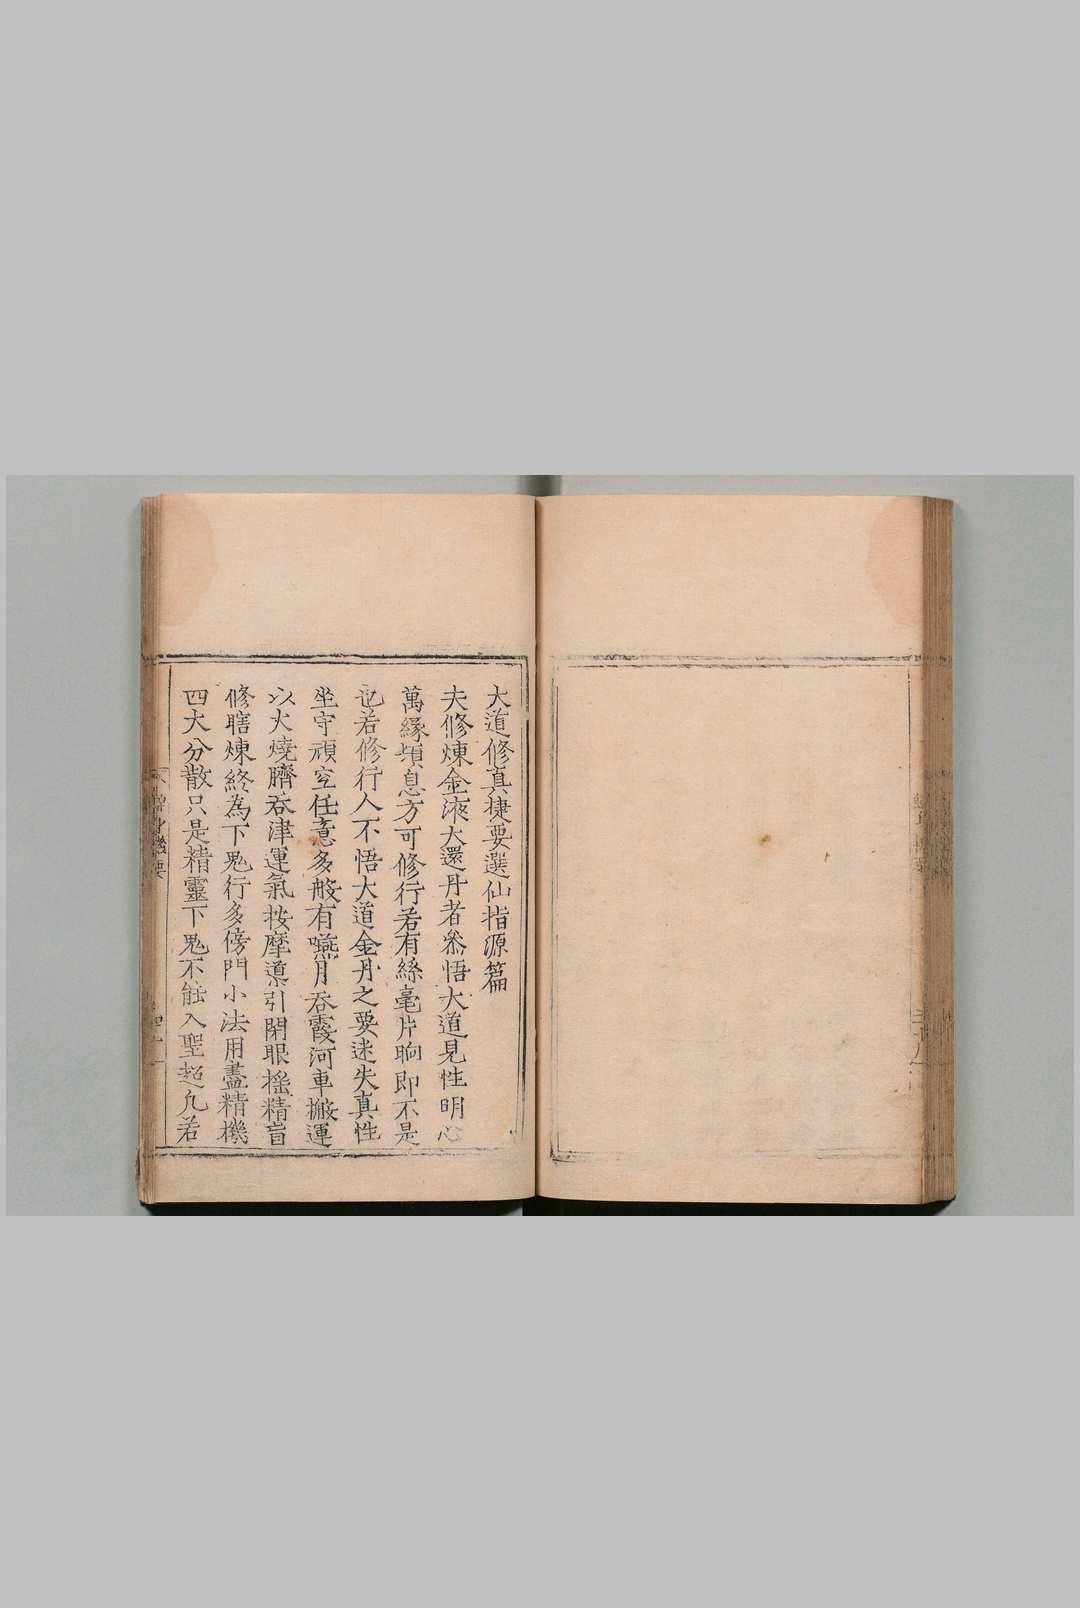 大道修真捷要選仙指源篇
夫修煉金液大還丹者叅悟大道見性明心
萬緣頓息方可修行若有絲毫片晌即不是
也若修行人不悟大道金丹之要迷失真性
坐守頑空任意多般有嚥月吞霞河車搬運
以火燒臍吞津運氣按摩導引閉眼搖精盲
修瞎煉終為下鬼行多傍門小法用盡精機
四大分散只是精靈下鬼不能入聖超凡若